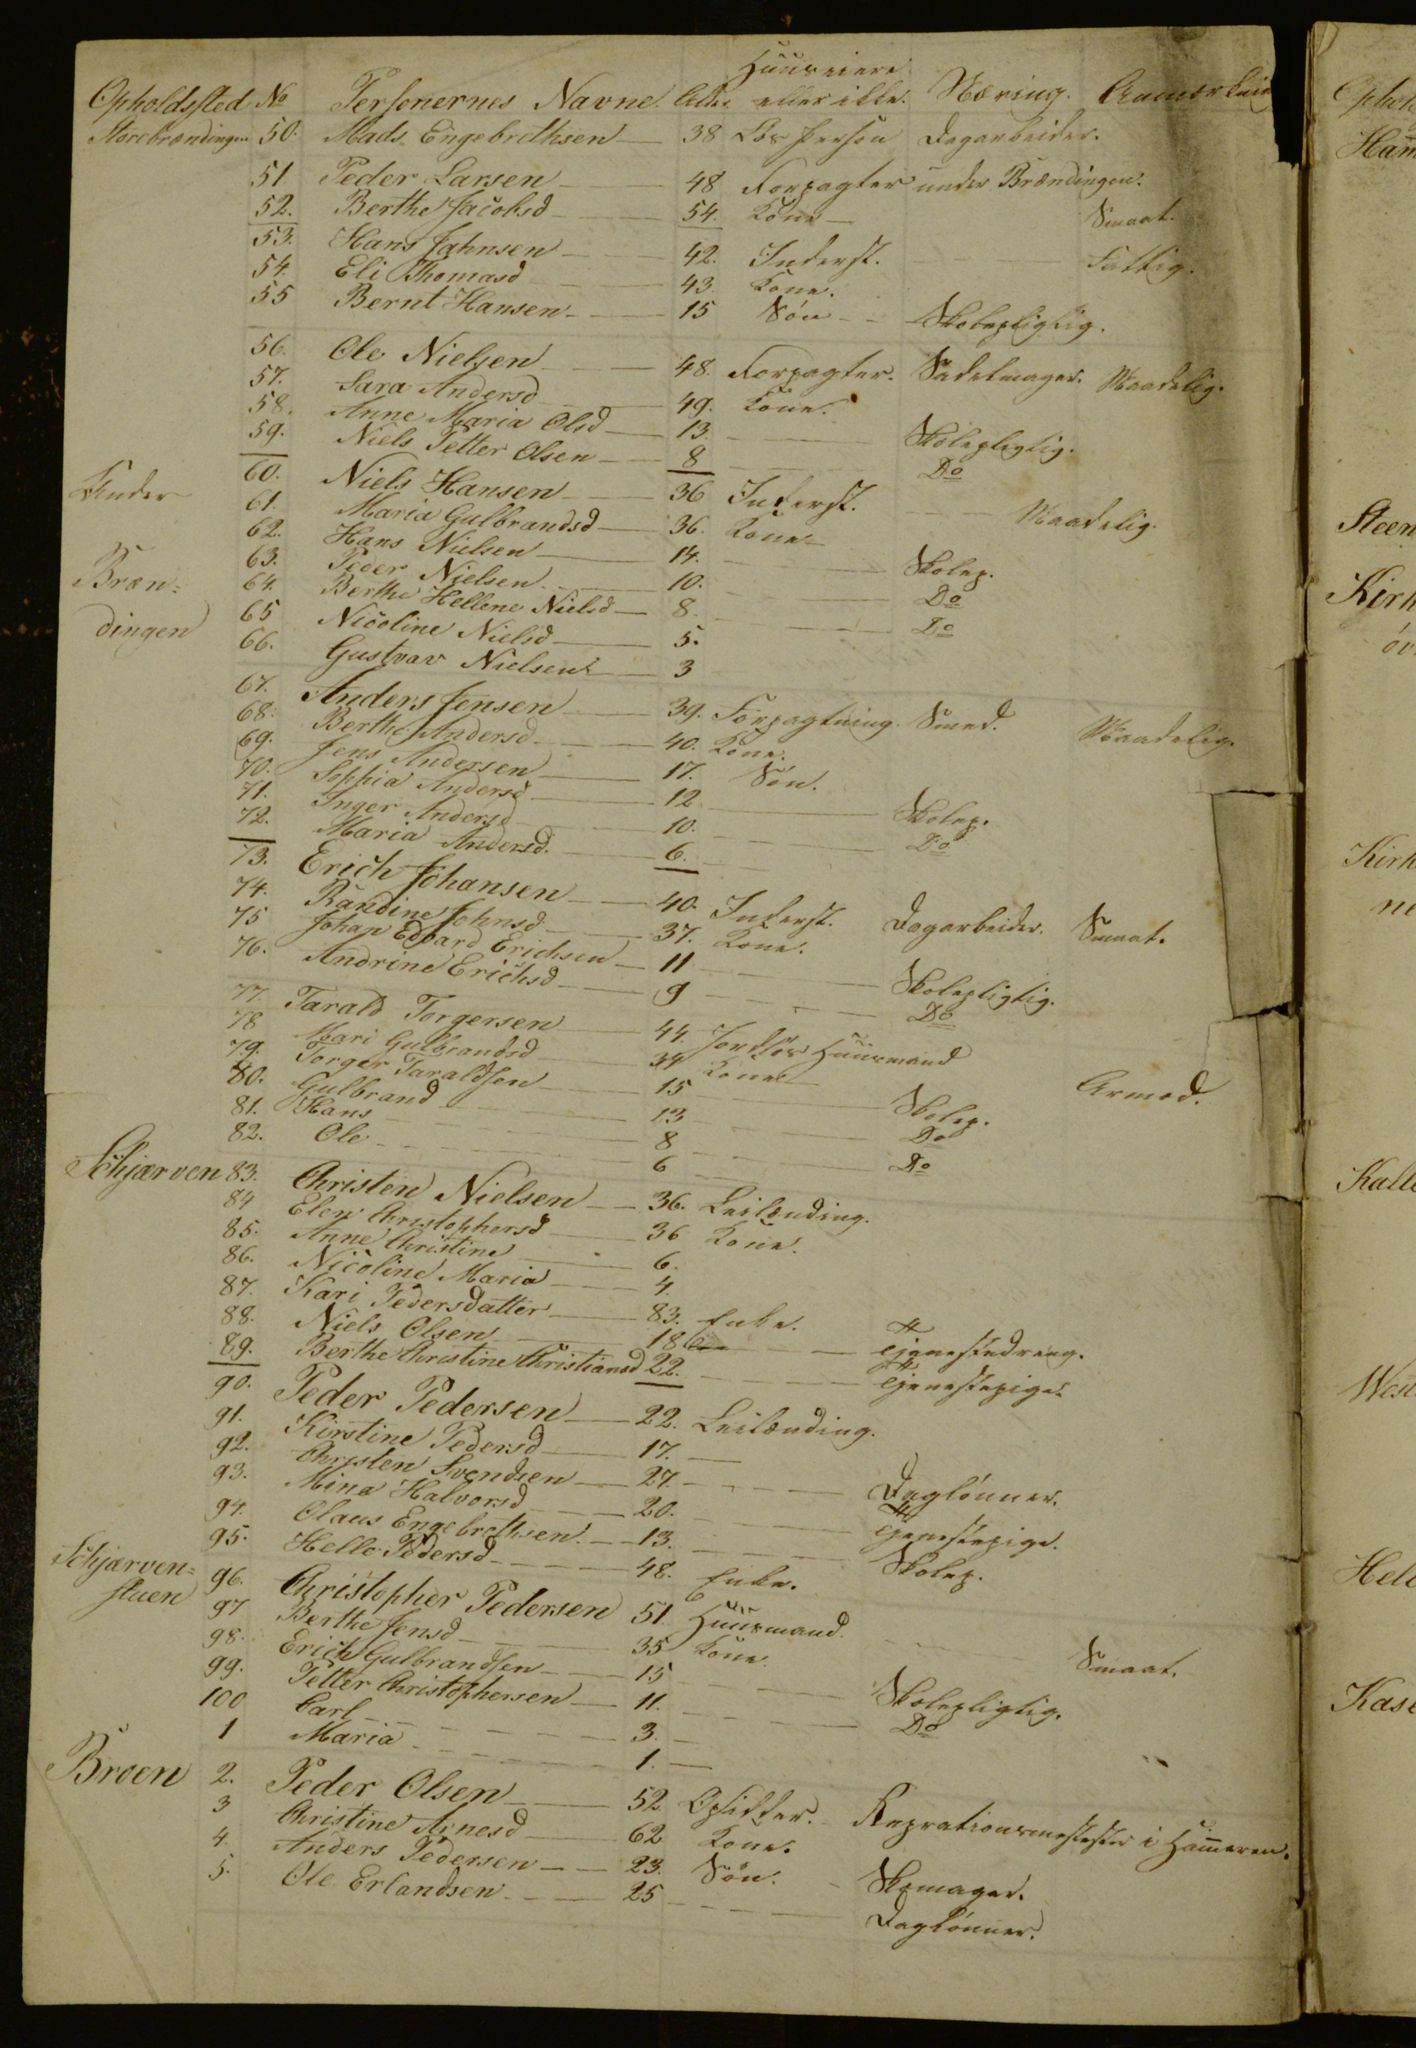 Opholdsted No Personernes Navne. Alder Huuseiere eller ikke. Næring. Anmærkning
Storebrændingen 50. Mads Engebrethsen 38 Løs Person Dagarbeider.
51 Peder Larsen 48 Forpagter under Brændingen.
52. Berthe Jacobsd 54. Kone Smaat.
53. Hans Jahnsen 42. Inderst. Fattig.
54. Eli Thomasd 43. Kone.
55 Bernt Hansen 15 Søn Skolepligtig.
56. Ole Nielsen 48. Forpagter. Sadelmager. Maadelig.
57. Sara Andersd 49. Kone.
58. Anne Maria Olsd 13. Skolepligtig.
59. Niels Petter Olsen 8 Do
Under 60. Niels Hansen 36 Inderst. Maadelig.
61. Maria Gulbrandsd 36. Kone
62. Hans Nielsen 14. Skolep.
Bræn= 63. Peder Nielsen 10. Do
64. Berthe Hellene Nielsd 8 Do
dingen 65 Nicoline Nielsd 5.
66. Gustvav Nielsen 3
67. Anders Jensen 39. Forpagtning. Smed. Maadelig.
68. Berthe Andersd 40. Kone.
69. Jens Andersen 17. Søn.
70. Sophia Andersd 12 Skolep.
71. Inger Andersd 10. Do
72. Maria Andersd. 6.
73. Erich Johansen 40. Inderst. Dagarbeider. Smaat.
74. Randine Johnsd 37. Kone.
75 Johan Edvard Erichsen 11 Skolepligtig.
76. Andrine Erichsd 9 Do
77. Tarald Torgersen 44. Jordløs Huusmand Armod.
78 Mari Gulbrandsd 34 Kone
79. Torger Taraldsen 15 Skolep.
80. Gulbrand 13 Do
81. Hans 8 Do
82. Ole 6
Schjærven 83. Christen Nielsen 36. Leilænding.
84 Elen Christophersd 36 Kone.
85. Anne Christine 6.
86. Nicoline Maria 4.
87. Kari Pedersdatter 83. Enke.
88. Niels Olsen 18 Tjenestedreng.
89. Berthe Christine Christiansd 22. Tjenestepige
90. Peder Pedersen 22. Leilænding.
91. Kirstine Pedersd 17.
92. Christen Svendsen 27. Daglønner.
93. Mina Halvorsd 20. Tjenestepige.
94. Olaus Engebrethsen. 13. Skolep.
95. Helle Pedersd 48. Enke.
Schjærven= 96. Christopher Pedersen 51. Huusmand. Smaat.
stuen 97 Berthe Jensd 35 Kone
98. Erich Gulbrandsen 15 Skolepligtig.
99. Petter Christophersen 11. Do
100 Carl 3.
1 Maria 1.
Broen 2. Peder Olsen 52 Opsidder. Reprationsmestester i Hammeren.
3 Christine Arnesd 62 Kone.
4. Anders Pedersen 23. Søn. Skomager.
5. Ole Erlandsen 25 Daglønner.
Steen
Kirk
Kirk
ne